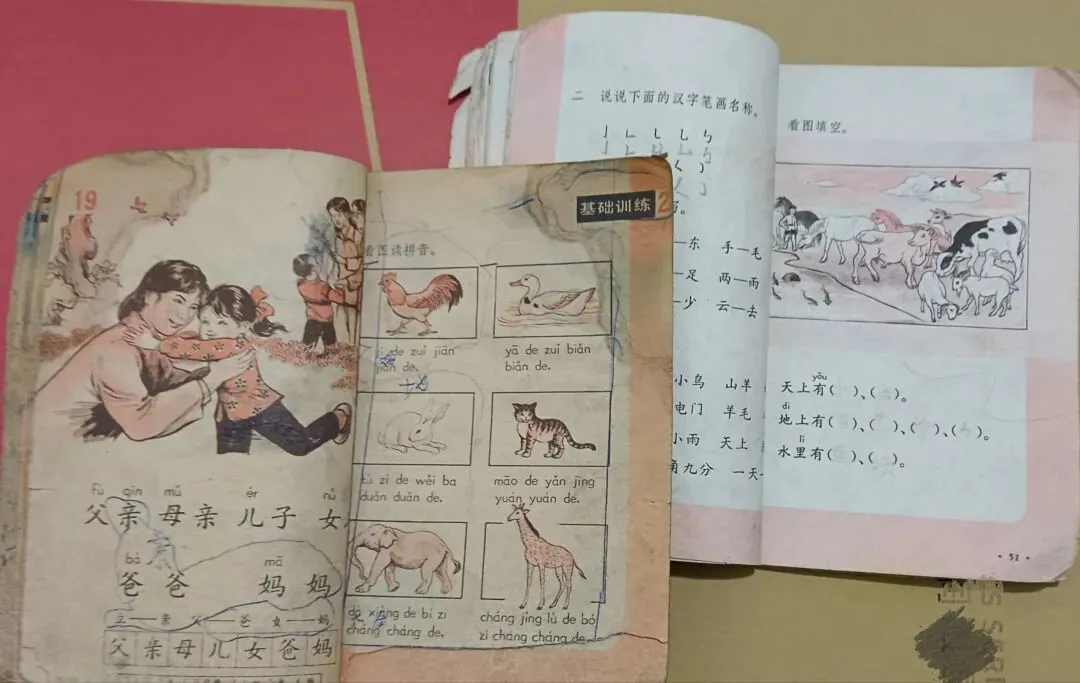 19
fù qin mǔ ér nǚ
父亲 母亲 儿子 女
bà mā
爸爸 妈妈
立——亲 父——爸 女——妈
父亲母儿女爸妈
基础训练2
看图读拼音。
de zuǐ jiān
jiān de.
yā de zuǐ biǎn
biǎn de.
tù zi de wěi ba
duǎn duǎn de.
māo de yǎn jing
yuán yuán de.
dà xiàng de bí zi
cháng cháng de.
cháng jǐng lù de bó
zi cháng cháng de.
二 说说下面的汉字笔画名称。
—东 手—毛
—足 两—雨
—少 云—去
小鸟 山羊
电门 羊毛
小雨 天上
角九分 一天
看图填空。
yǒu
天上有( )、( )。
dì
地上有( )、( )、( )、( )。
lǐ
水里有( )、( )。
·51·